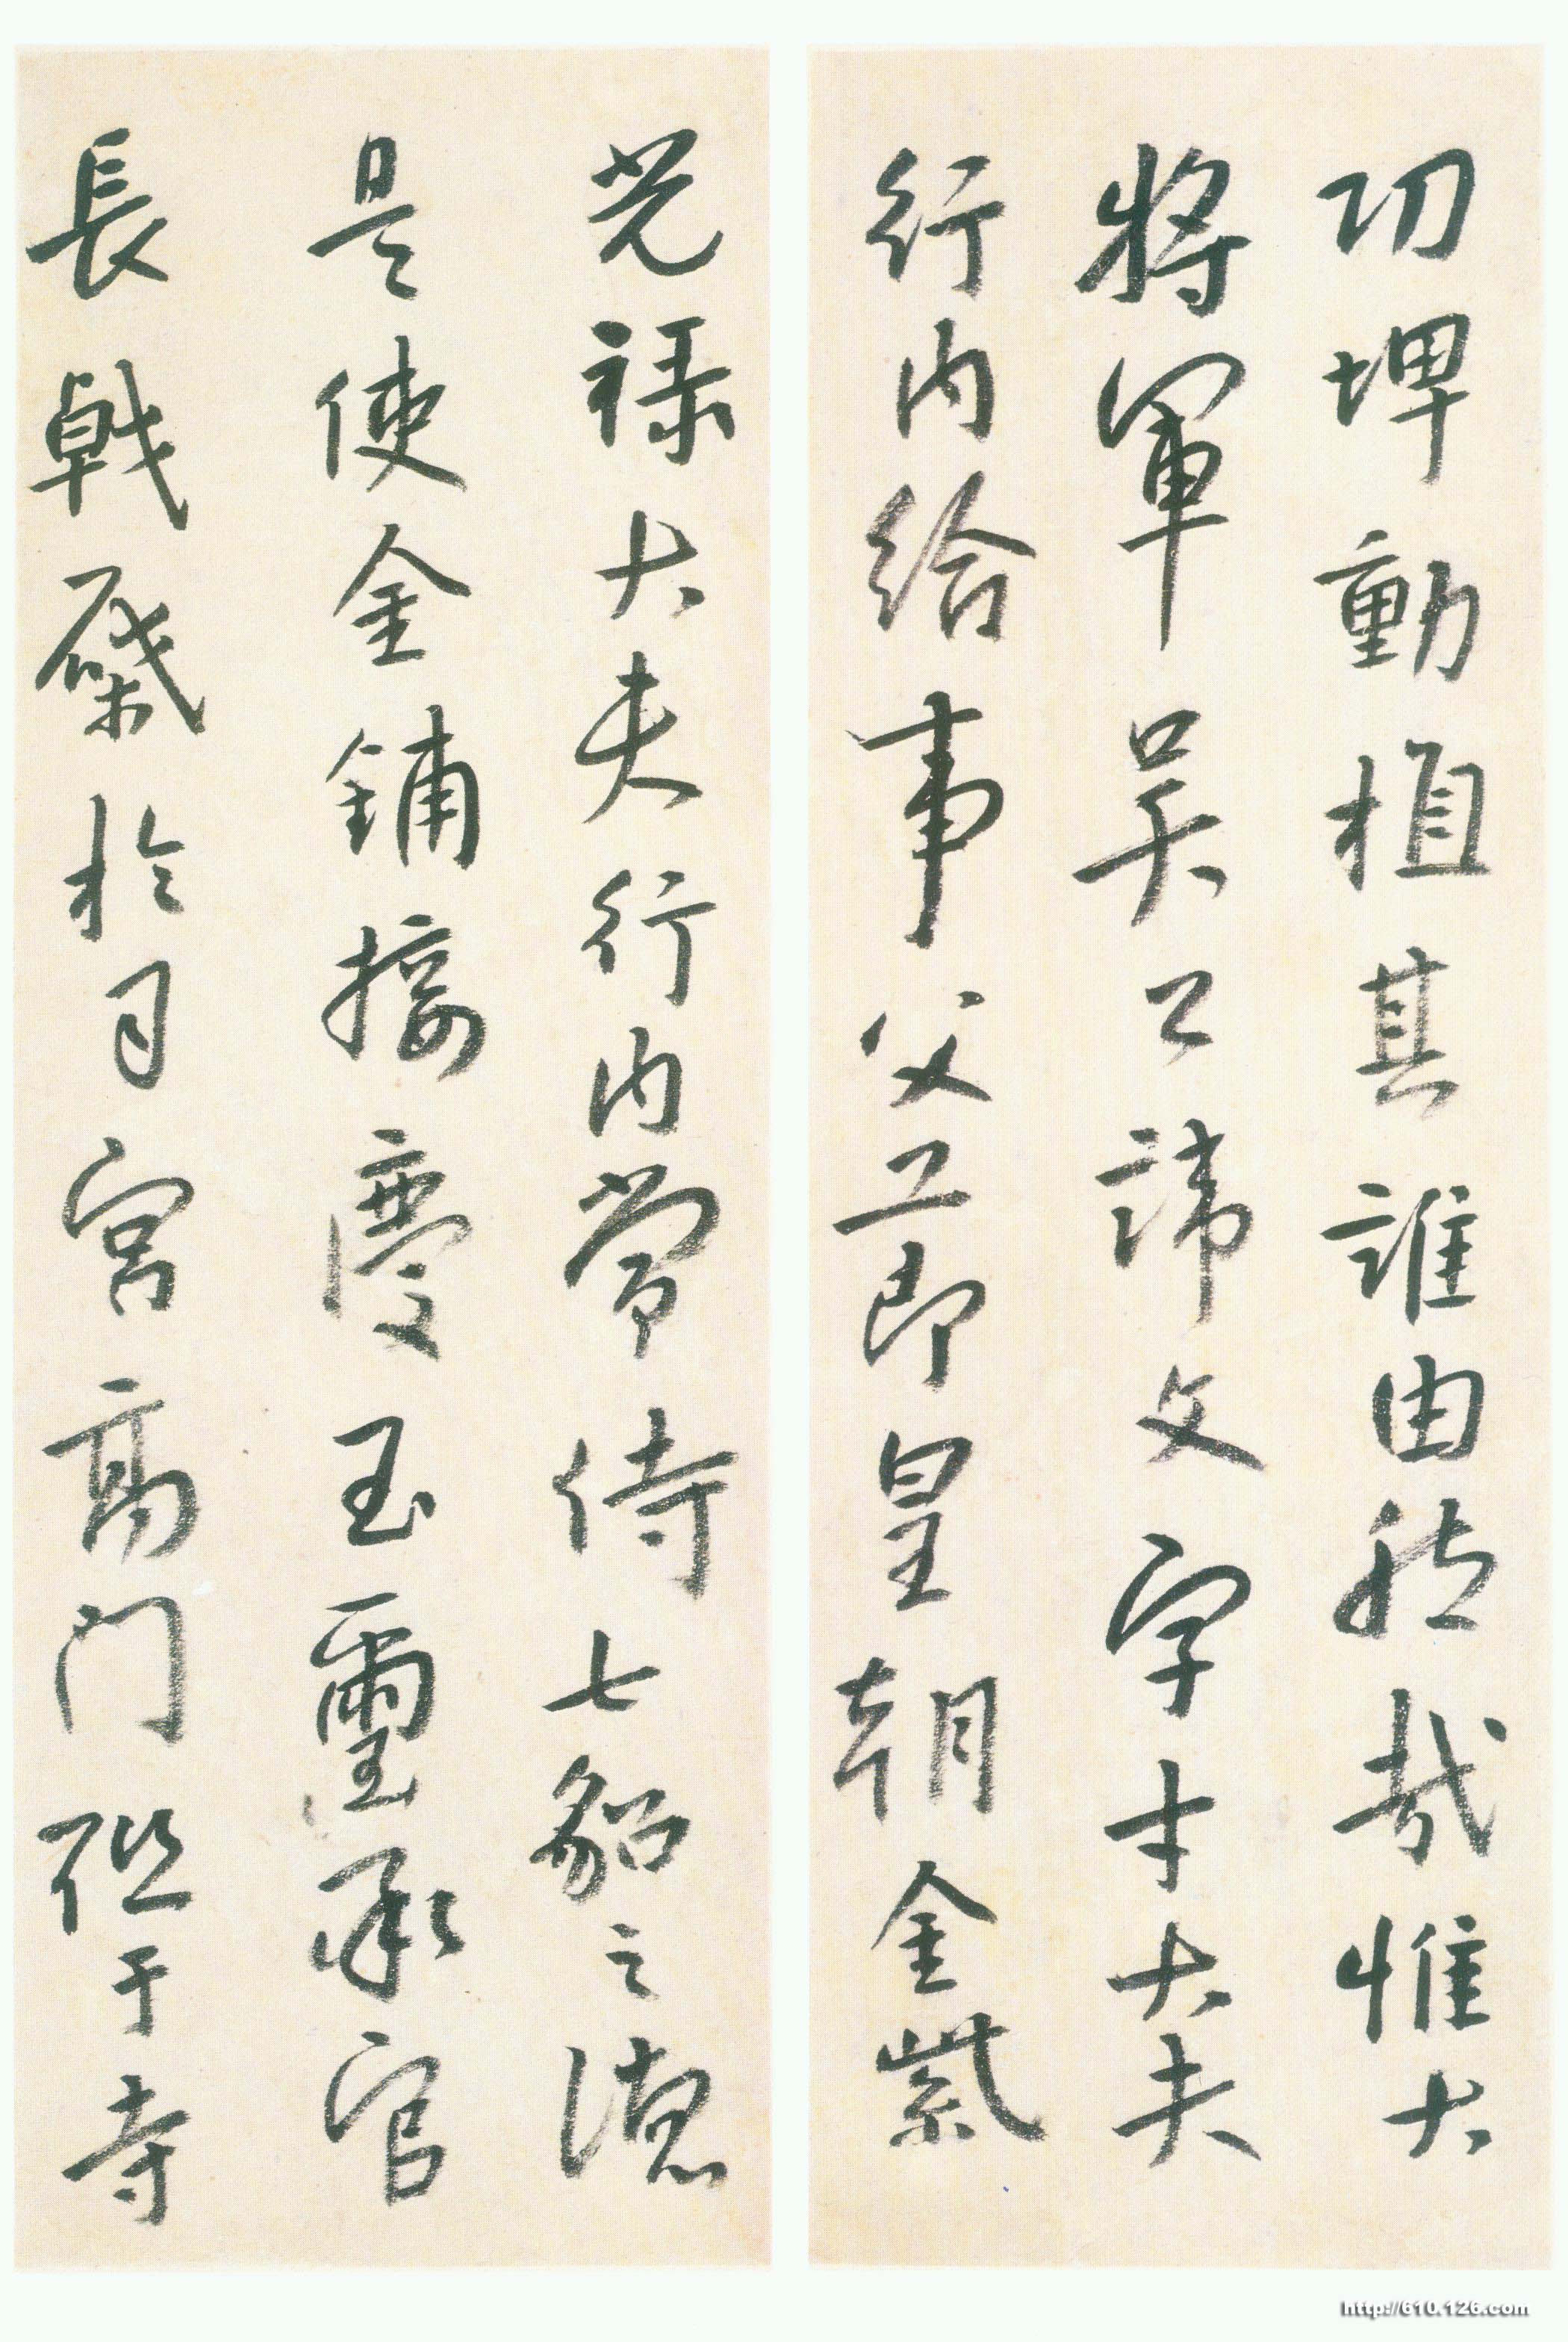 功埤動植其誰由然哉惟大
將軍吳公諱文字才大夫
行內給事父公即皇朝金紫
光祿大夫行內常侍七貂之德
是使金鋪接慶玉璽承官
長戟棨於司宮高門陛于寺
http://610.126.com